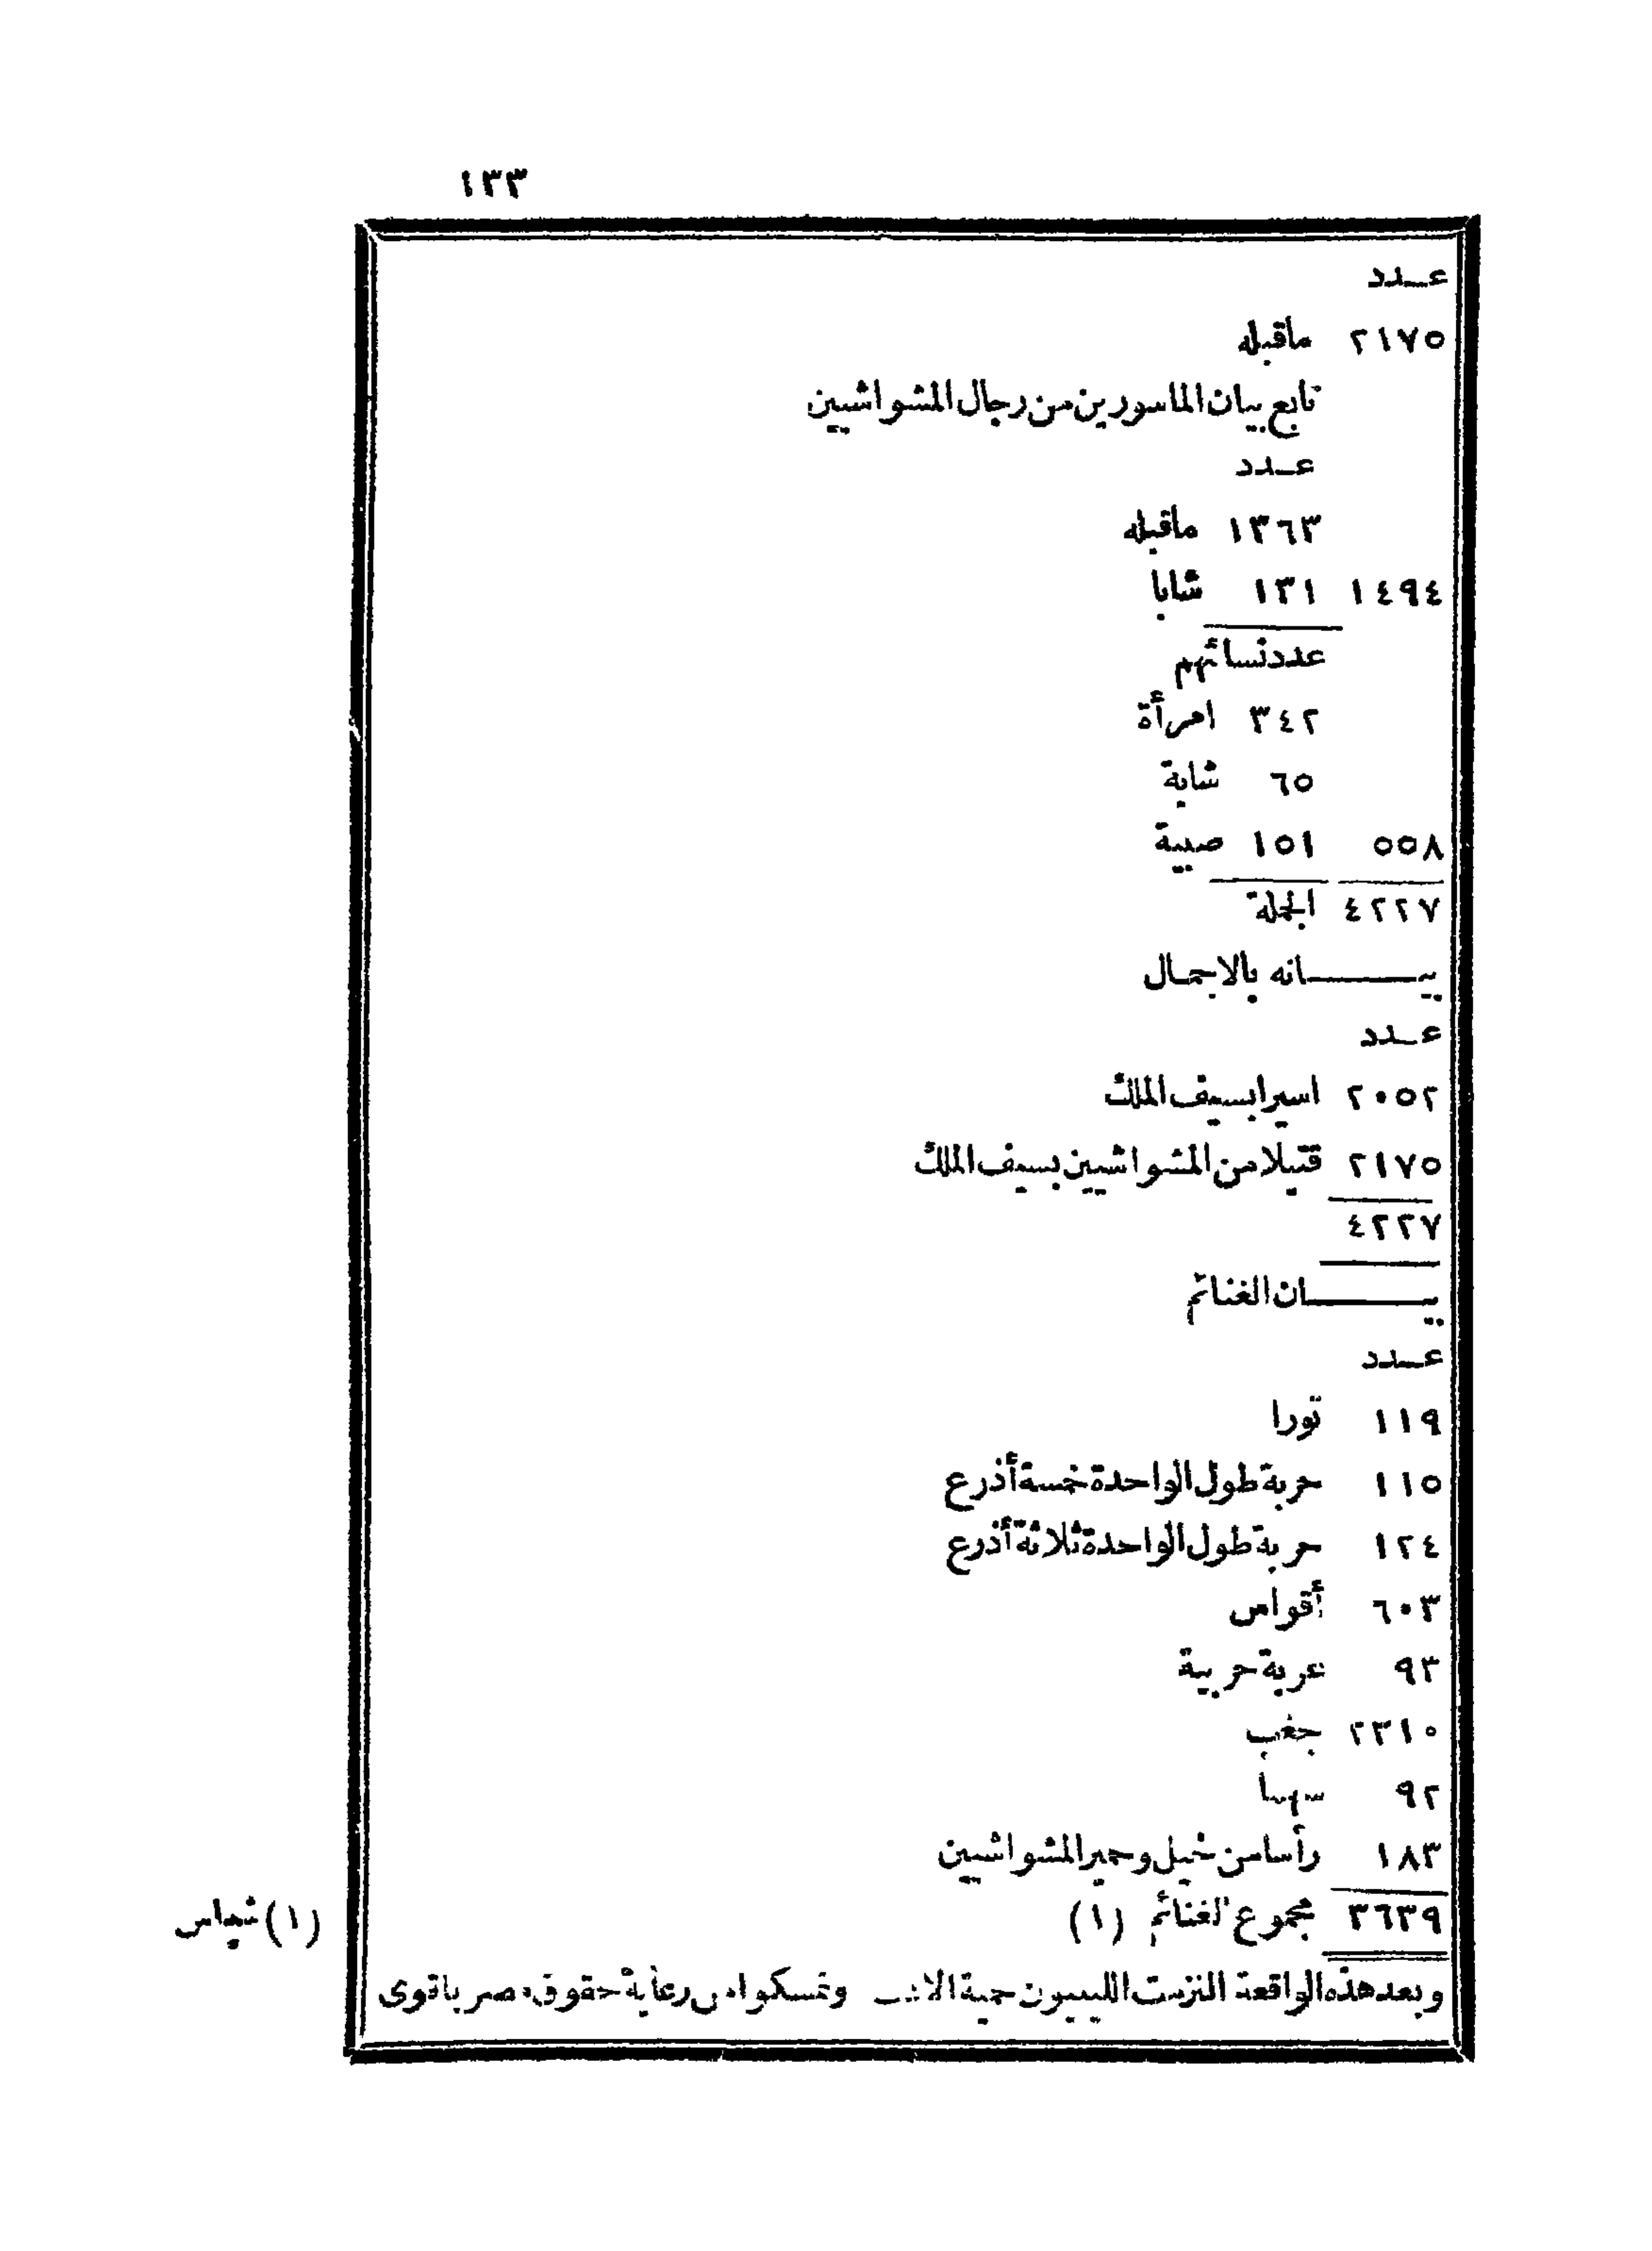 ١٣٣
عـدد
٢١٧٥ ماقبله
تابع بيان الماسورين من رجال المشواشيين
عـدد
١٣٦٣ ماقبله
١٤٩٤ ١٣١ شابا
عدد نسائهم
٣٤٢ امرأة
٦٥ شابة
٥٥٨ ١٥١ صبية
٤٢٢٧ الجملة
بيـــــانه بالاجمـال
عـدد
٢٠٥٢ اسيرا بسيف الملك
٢١٧٥ قتيلا من المشواشيين بسيف الملك
٤٢٢٧
بيـــــان الغنائم
عـدد
١١٩ ثورا
١١٥ حربة طول الواحدة خمسة أذرع
١٢٤ حربة طول الواحدة ثلاثة أذرع
٦٠٣ أقواس
٩٣ عربة حربية
٢٣١٠ جغب
٩٢ سهما
١٨٣ رأسا من خيل وحمير المشواشيين
٣٦٣٩ مجموع الغنائم (١)
(١) شباس
وبعد هذه الواقعة التزمت الليبيون حمية وتمسكوا رعاية حقوق مصر باقوى